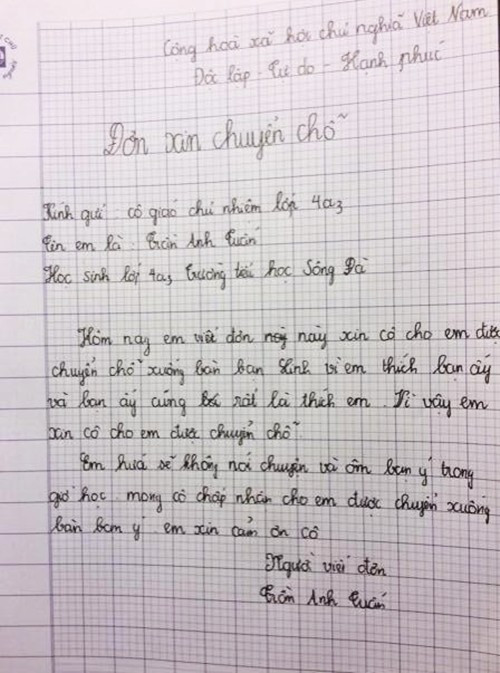 Công hoà xã hội chủ nghĩa Việt Nam
Độc lập - Tự do - Hạnh phúc
Đơn xin chuyển chỗ
Kính gửi cô giáo chủ nhiệm lớp 4a3
Tên em là: Trần Anh Tuấn
Học sinh lớp 4a3 trường tiểu học Sông Đà
Hôm nay em viết đơn này xin cô cho em được
chuyển chỗ xuống bàn bạn Linh vì em thích bạn ấy
và bạn ấy cũng rất là thích em. Vì vậy em
xin cô cho em được chuyển chỗ.
Em hứa sẽ không nói chuyện và ôm bạn ý trong
giờ học. mong cô chấp nhân cho em được chuyển xuống
bàn bạn ý em xin cảm ơn cô
Người viết đơn
Trần Anh Tuấn